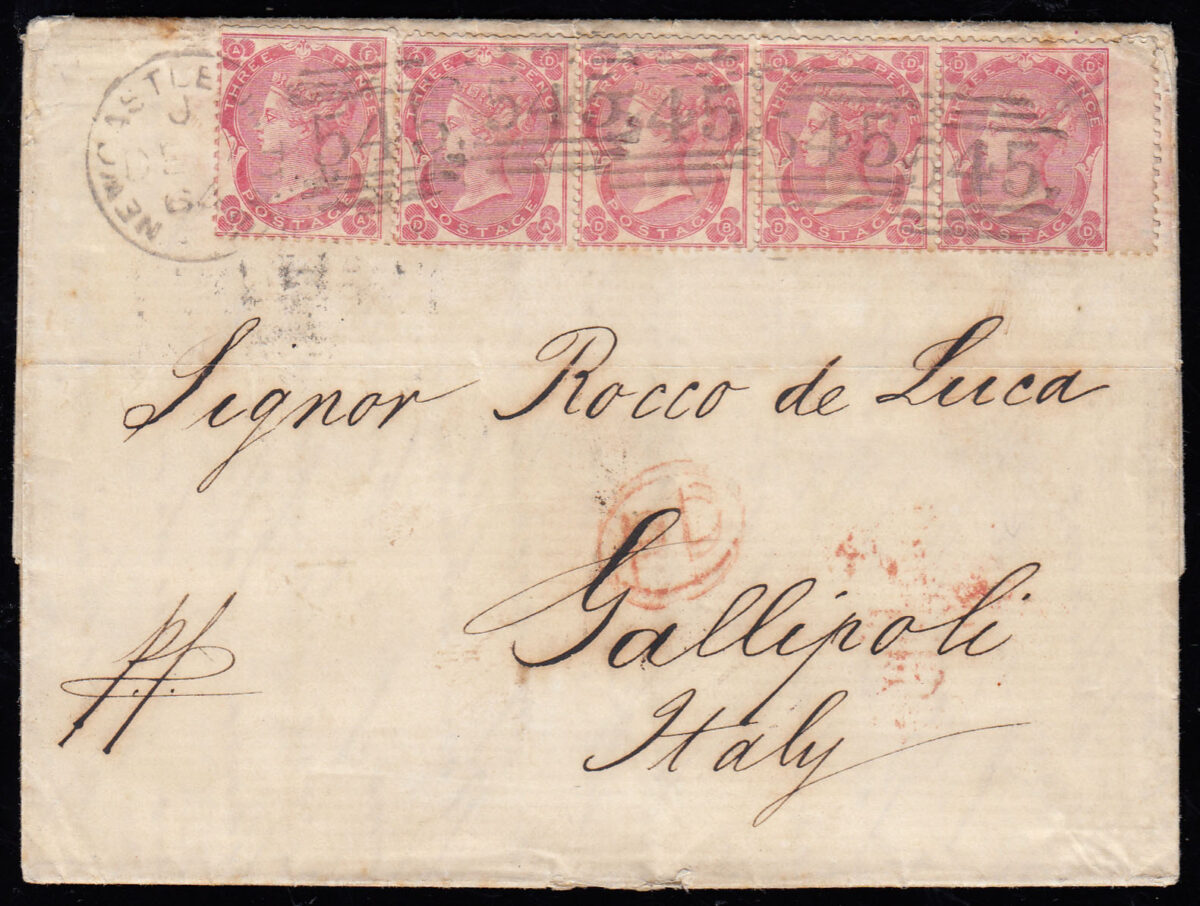 NEWCASTLE
J
DE
64
THREE PENCE
POSTAGE
THREE PENCE
POSTAGE
THREE PENCE
POSTAGE
THREE PENCE
POSTAGE
THREE PENCE
POSTAGE
545 545 545 545 545
Signor Rocco de Luca
PD
Gallipoli
Italy
p.f.